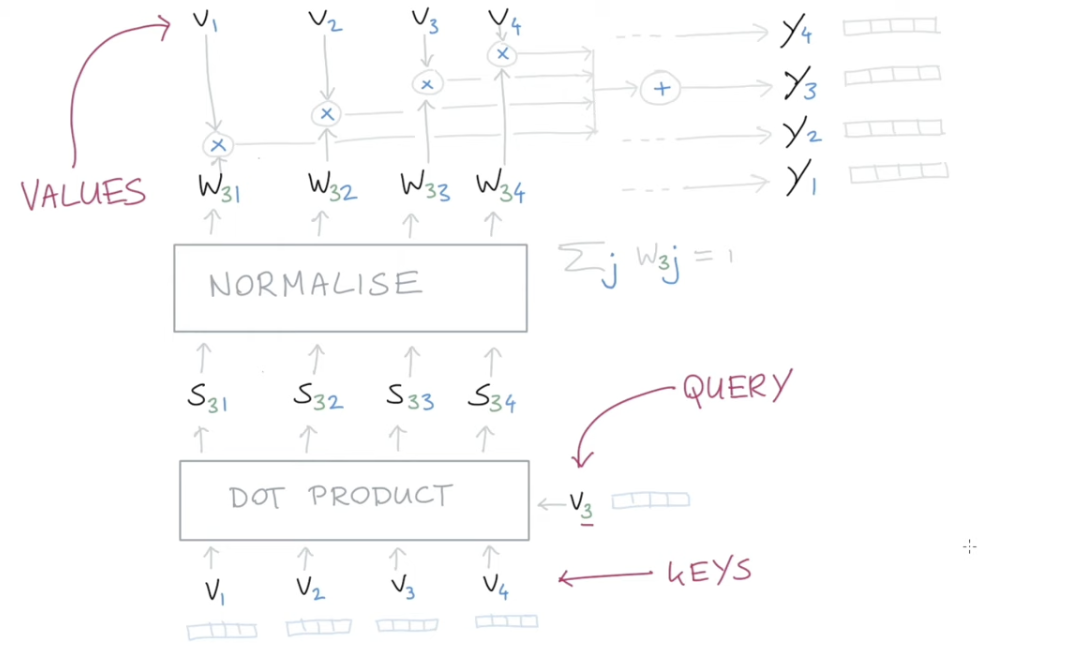 V1 V2 V3 V4
x x x x
+
y4
y3
y2
y1
VALUES
W31 W32 W33 W34
NORMALISE
∑j W3j = 1
S31 S32 S33 S34
QUERY
DOT PRODUCT
V3
V1 V2 V3 V4
KEYS